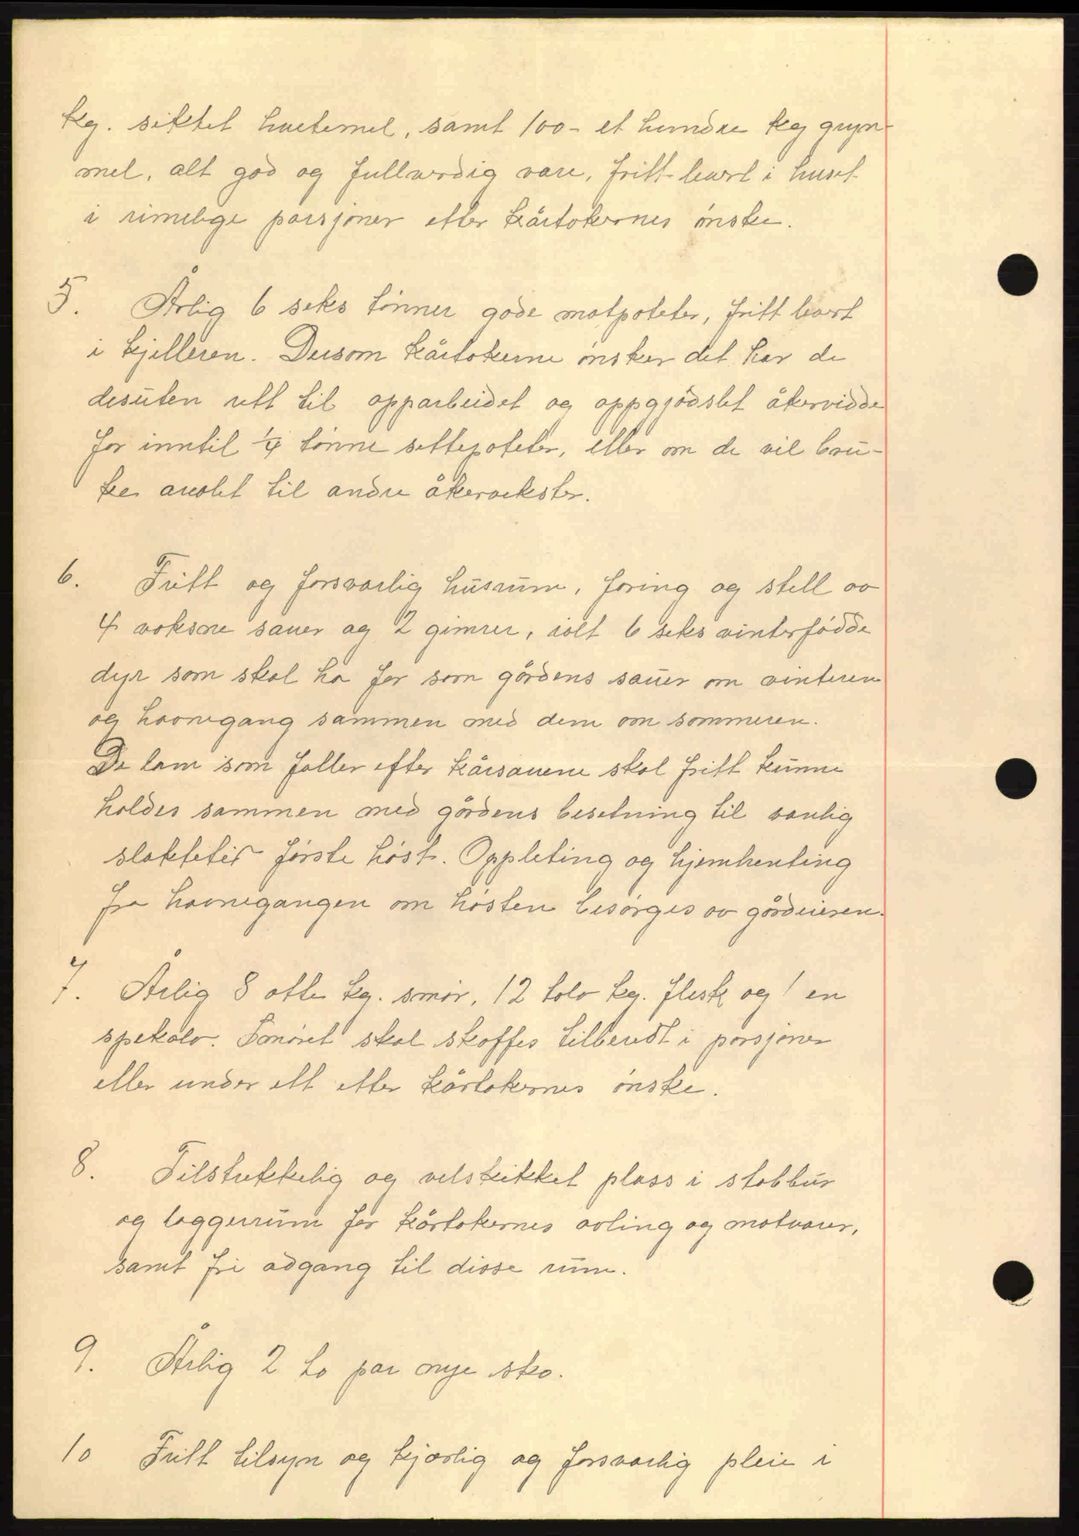 kg. siktet hvetemel, samt 100 - et hundre kg gryn-
mel, alt god og fullverdig vare, fritt levert i huset
i rimelige porsjoner etter kårtakernes ønske.
5. Årlig 6 seks tønner gode matpoteter, fritt levert
i kjelleren. Dersom kårtakerne ønsker det har de
desuten rett til opparbeidet og oppgjødslet åkervidde
for inntil 1/4 tønne settepoteter, eller om de vil bru-
ke arealet til andre åkervekster.
6. Fritt og forsvarlig husrum, foring og stell av
4 voksne sauer og 2 gimrer, ialt 6 seks vinterfødde
dyr som skal ha for som gårdens sauer om vinteren
og havnegang sammen med dem om sommeren.
De lam som faller efter kårsauene skal fritt kunne
holdes sammen med gårdens besetning til vanlig
slaktetid første høst. Oppleting og hjemhenting
fra havnegangen om høsten besørges av gårdeieren.
7. Årlig 8 otte kg. smør, 12 tolv kg. flesk og 1 en
spekalv. Smøret skal skaffes tilberedt i porsjoner
eller under ett etter kårtakernes ønske.
8. Tilstrekkelig og velskikket plass i stabbur
og laggerrum for kårtakernes avling og matvarer,
samt fri adgang til disse rum.
9. Årlig 2 to par nye sko.
10 Fritt tilsyn og kjærlig og forsvarlig pleie i